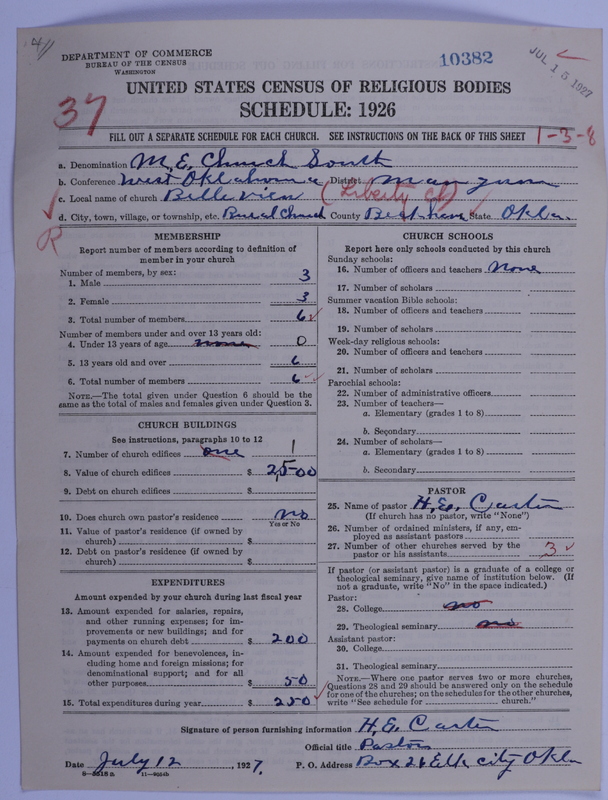 DEPARTMENT OF COMMERCE
BUREAU OF THE CENSUS
WASHINGTON
10382
JUL 15 1927
UNITED STATES CENSUS OF RELIGIOUS BODIES
SCHEDULE: 1926
37
FILL OUT A SEPARATE SCHEDULE FOR EACH CHURCH. SEE INSTRUCTIONS ON THE BACK OF THIS SHEET
1-3-8
a. Denomination M, E, Church South
b. Conference West Oklahoma District Mangum
c. Local name of church Belleview (Liberty Ch)
d. City, town, village, or township, etc. Rural Church County Beckham State Okla.
R
MEMBERSHIP
Report number of members according to definition of
member in your church
Number of members, by sex:
1. Male 3
2. Female 3
3. Total number of members 6
Number of members under and over 13 years old:
4. Under 13 years of age none 0
5. 13 years old and over 6
6. Total number of members 6
NOTE.—The total given under Question 6 should be the
same as the total of males and females given under Question 3.
CHURCH BUILDINGS
See instructions, paragraphs 10 to 12
7. Number of church edifices one 1
8. Value of church edifices $ 2,500
9. Debt on church edifices $
10. Does church own pastor's residence no
Yes or No
11. Value of pastor's residence (if owned by
church) $
12. Debt on pastor's residence (if owned by
church) $
EXPENDITURES
Amount expended by your church during last fiscal year
13. Amount expended for salaries, repairs,
and other running expenses; for im-
provements or new buildings; and for
payments on church debt $ 200
14. Amount expended for benevolences, in-
cluding home and foreign missions; for
denominational support; and for all
other purposes $ 50
15. Total expenditures during year $ 250
CHURCH SCHOOLS
Report here only schools conducted by this church
Sunday schools:
16. Number of officers and teachers none
17. Number of scholars
Summer vacation Bible schools:
18. Number of officers and teachers
19. Number of scholars
Week-day religious schools:
20. Number of officers and teachers
21. Number of scholars
Parochial schools:
22. Number of administrative officers
23. Number of teachers—
a. Elementary (grades 1 to 8)
b. Secondary
24. Number of scholars—
a. Elementary (grades 1 to 8)
b. Secondary
PASTOR
25. Name of pastor H, E, Carter
(If church has no pastor, write "None")
26. Number of ordained ministers, if any, em-
ployed as assistant pastors
27. Number of other churches served by the
pastor or his assistants 3
If pastor (or assistant pastor) is a graduate of a college or
theological seminary, give name of institution below. (If
not a graduate, write "No" in the space indicated.)
Pastor:
28. College no
29. Theological seminary no
Assistant pastor:
30. College
31. Theological seminary
NOTE.—Where one pastor serves two or more churches,
Questions 28 and 29 should be answered only on the schedule
for one of the churches; on the schedules for the other churches,
write "See schedule for church."
Signature of person furnishing information H, E, Carter
Official title Pastor
Date July 12, 1927. P. O. Address Box 26 Elk City Okla